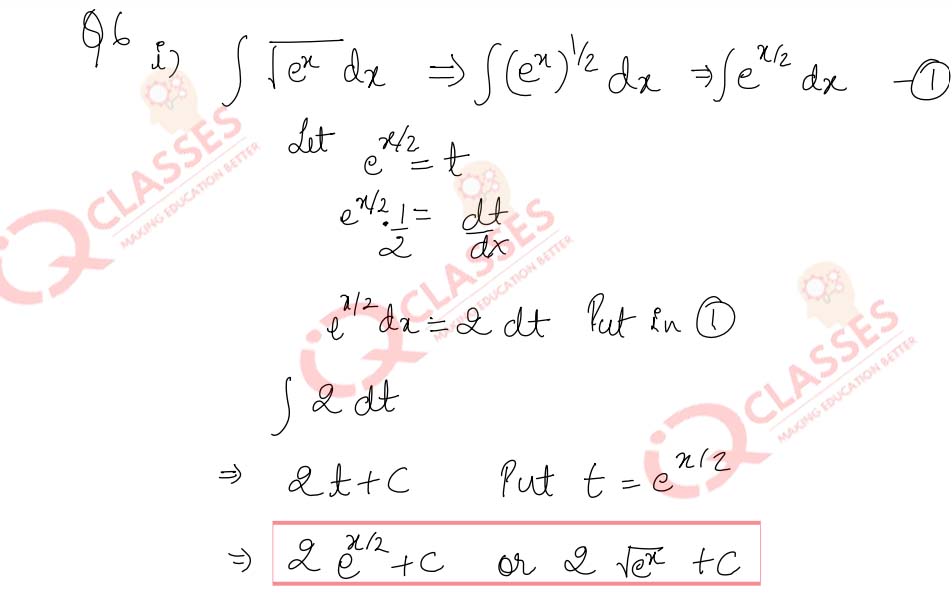 Q6 i) ∫ √eˣ dx ⇒ ∫(eˣ)^1/2 dx ⇒ ∫e^x/2 dx — ①
Let e^x/2 = t
e^x/2 · 1/2 = dt/dx
e^x/2 dx = 2 dt Put in ①
∫ 2 dt
⇒ 2t + C Put t = e^x/2
⇒ 2 e^x/2 + C or 2 √eˣ + C
iQ CLASSES
MAKING EDUCATION BETTER
iQ CLASSES
MAKING EDUCATION BETTER
iQ CLASSES
MAKING EDUCATION BETTER